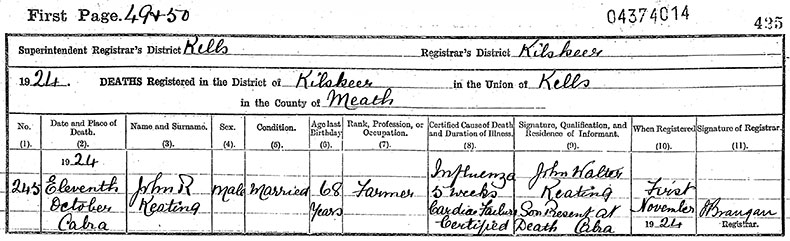 First Page. 49+50
04374014
425
Superintendent Registrar's District Kells Registrar's District Kilskeer
1924. DEATHS Registered in the District of Kilskeer in the Union of Kells
in the County of Meath
No. (1).
Date and Place of Death. (2).
Name and Surname. (3).
Sex. (4).
Condition. (5).
Age last Birthday (6).
Rank, Profession, or Occupation. (7).
Certified Cause of Death and Duration of Illness. (8).
Signature, Qualification, and Residence of Informant. (9).
When Registered (10).
Signature of Registrar. (11).
245
1924
Eleventh
October
Cabra
John R
Keating
Male
Married
68
Years
Farmer
Influenza
5 weeks
Cardiac Failure
Certified
John Walter
Keating
Son Present at
Death Cabra
First
November
1924
Brangan
Registrar.